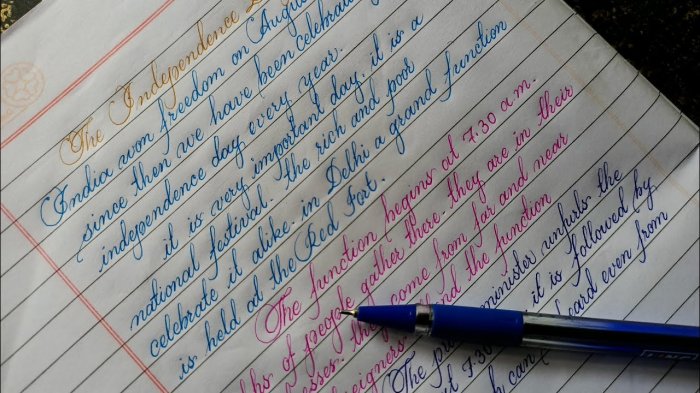 The Independence
India won freedom on August
since then we have been celebrating
independence day every year.
it is very important day. it is a
national festival. the rich and poor
celebrate it alike. in Delhi a grand function
is held at the Red Fort.
The function begins at 7.30 a.m.
of people gather there. they are in their
come from far and near
and the function
The minister unfurls the
7.30 it is followed by
can heard even from